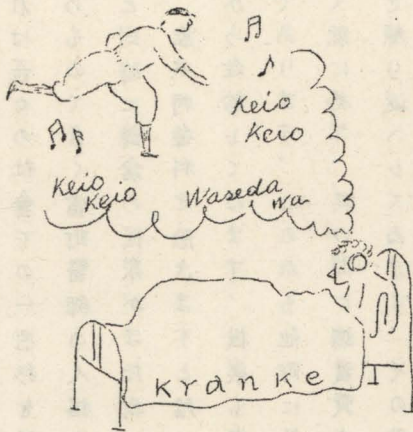 Keio
Keio
Keio
Keio
Waseda Wa
Kranke